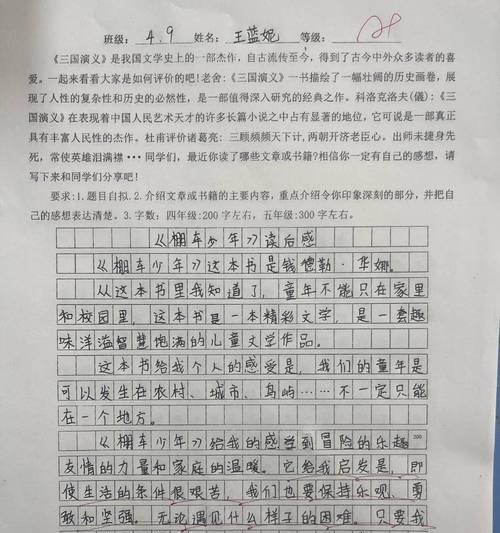 班级: 4.9 姓名: 王蓝妮 等级: 28
《三国演义》是我国文学史上的一部杰作，自古流传至今，得到了古今中外众多读者的喜
爱。一起来看看大家是如何评价的吧！老舍:《三国演义》一书描绘了一幅壮阔的历史画卷，展
现了人性的复杂性和历史的必然性，是一部值得深入研究的经典之作。科洛克洛夫(俄):《三
国演义》在表现着中国人民艺术天才的许多长篇小说之中占有显著的地位，它可说是一部真正
具有丰富人民性的杰作。杜甫评价诸葛亮: 三顾频频天下计,两朝开济老臣心。出师未捷身先
死，常使英雄泪满襟···同学们，最近你读了哪些文章或书籍?相信你一定有自己的感想，请
写下来和同学们分享吧！
要求:1.题目自拟.2.介绍文章或书籍的主要内容，重点介绍令你印象深刻的部分，并把自
己的感想表达清楚。3.字数：四年级:200字左右，五年级:300字左右。
《棚车少年》读后感
《棚车少年》这本书是钱德勒·华娜。
从这本书里我知道了，童年不能只在家里
和校园里，这本书是一本精彩文学，是一套趣
味洋溢智慧饱满的儿童文学作品。
这本书给我个人的感受是，我们的童年是
可以发生在农村、城市、岛屿……不一定只能
在一个地方。
《棚车少年》给我的感受到冒险的乐趣 200
友情的力量和家庭的温暖。它给我启发是，即
使生活的条件很艰苦，我们也要保持乐观、勇
敢和坚强。无论遇见什么样子的困难。只要我